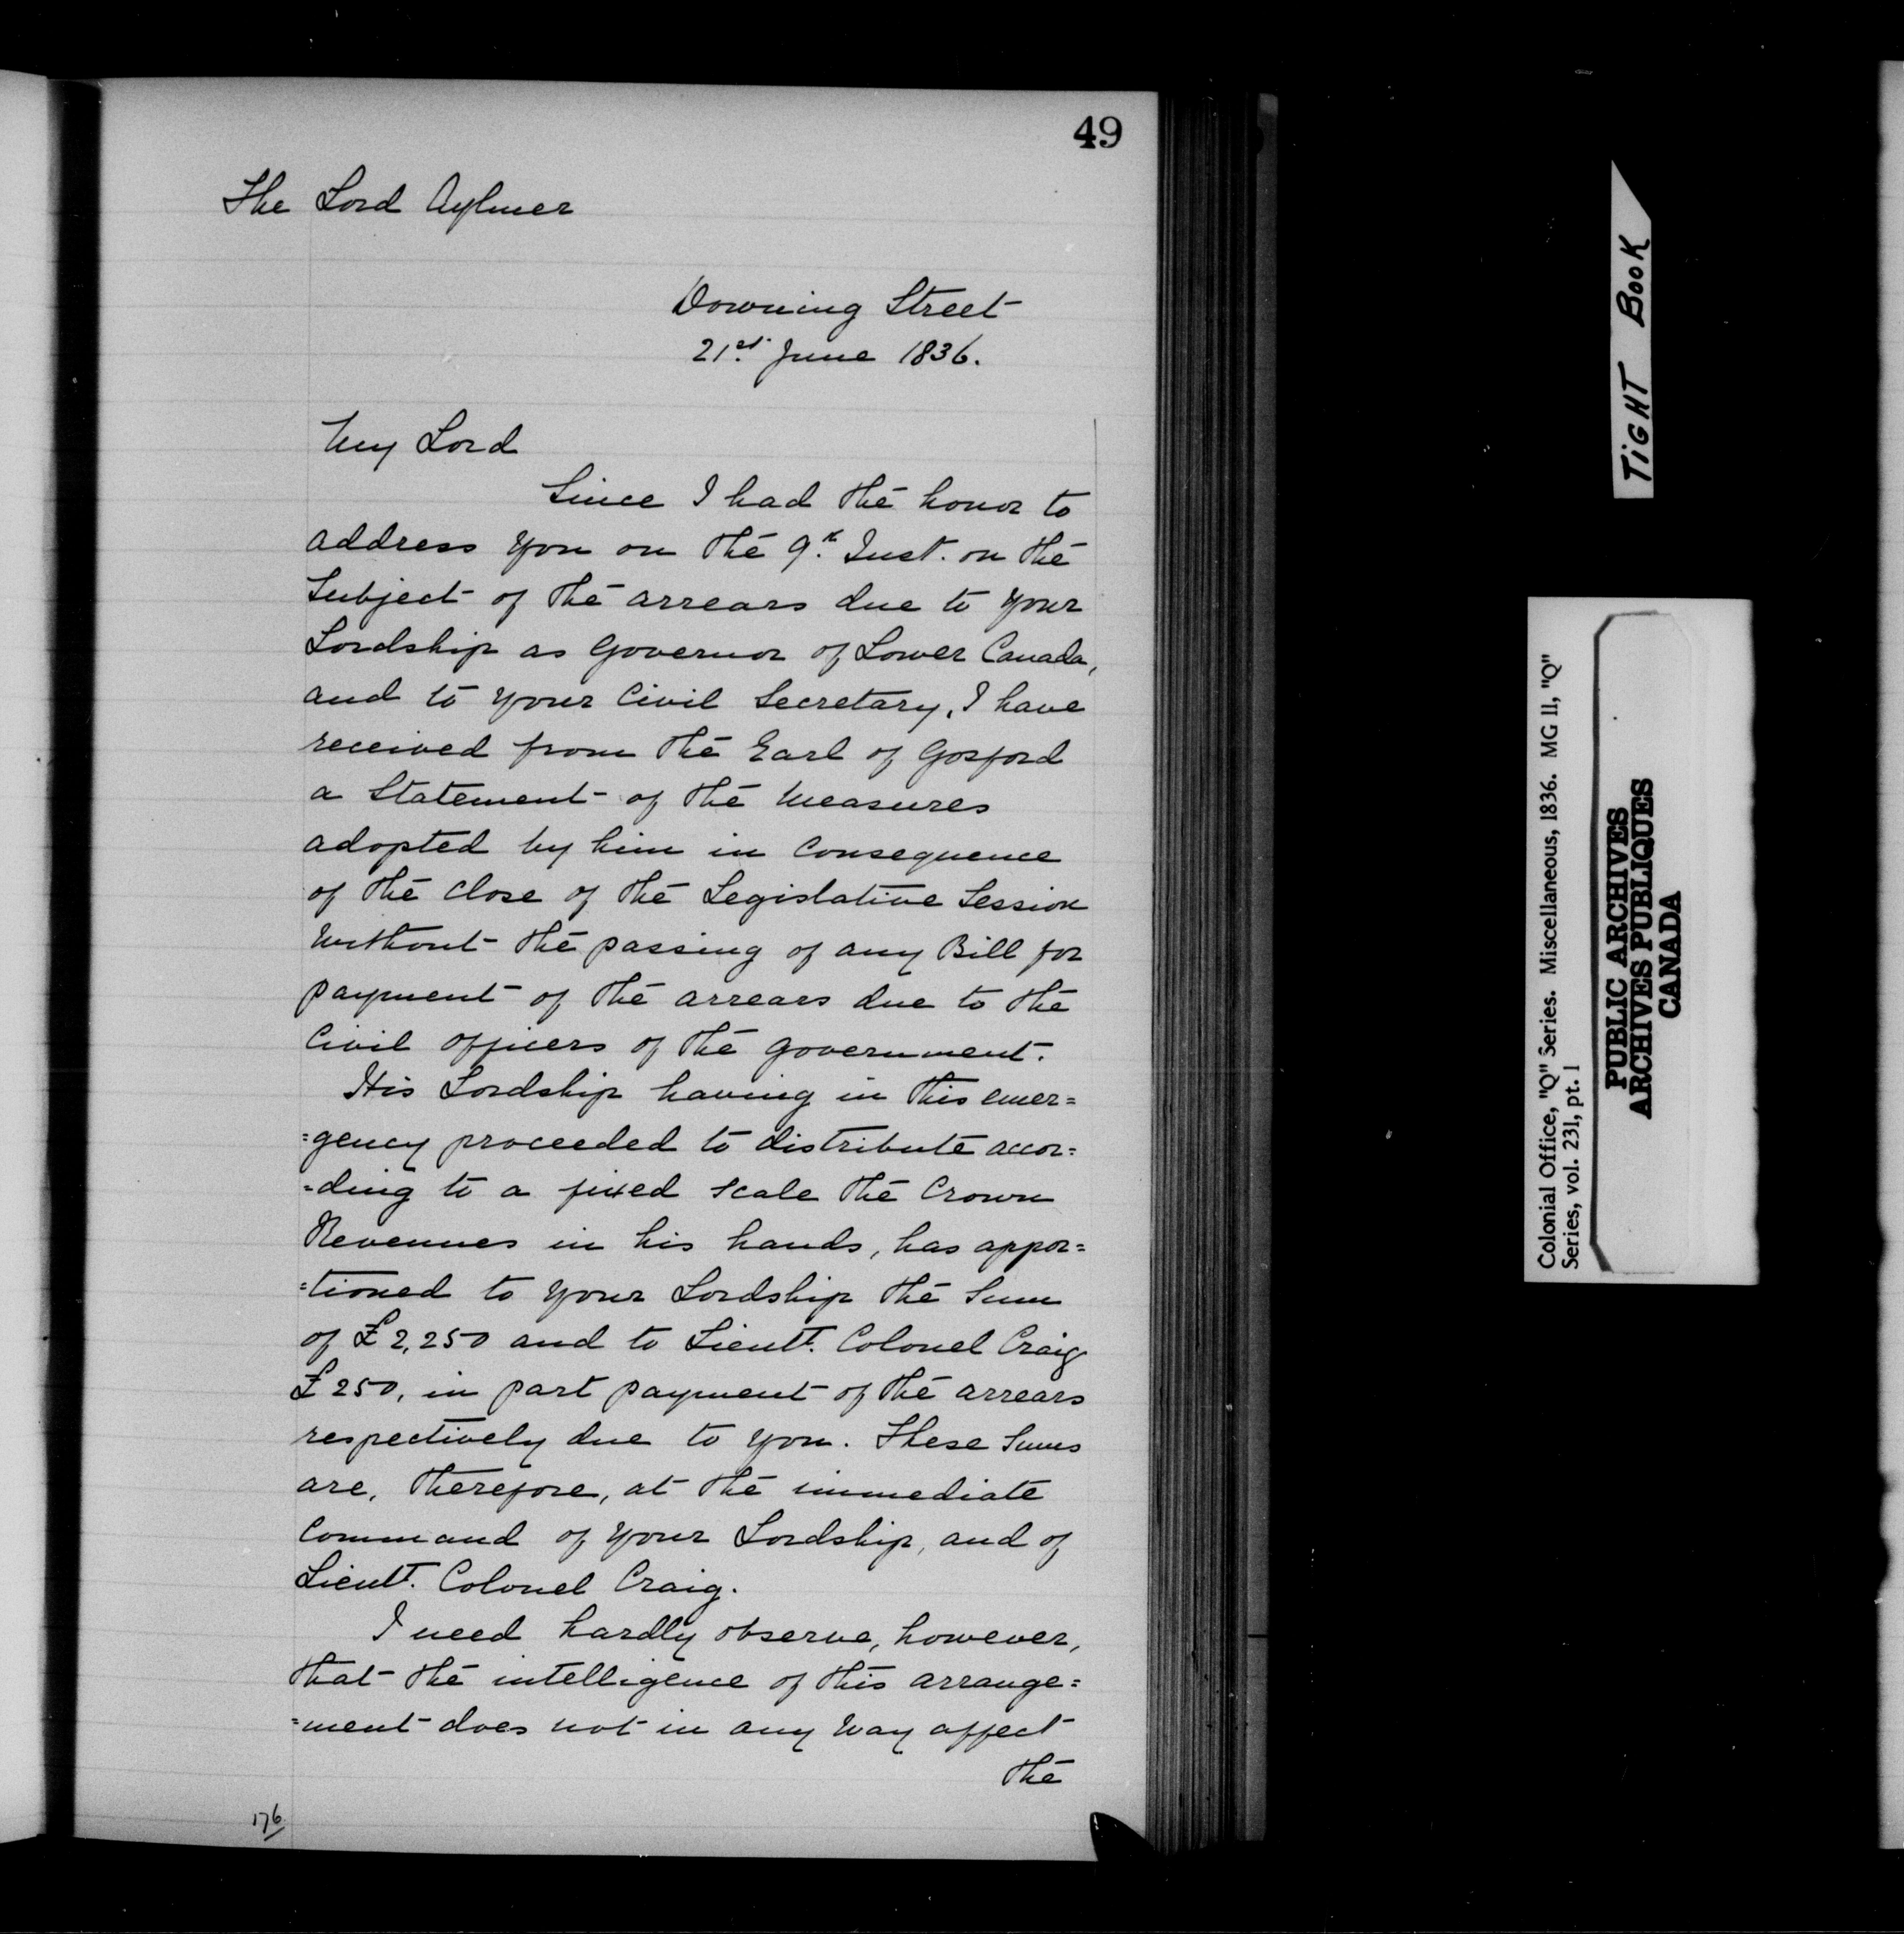 49
The Lord Aylmer
Downing Street
21st. June 1836.
My Lord
Since I had the honor to
address you on the 9.th Inst. on the
Subject of the arrears due to your
Lordship as Governor of Lower Canada,
and to your Civil Secretary, I have
received from the Earl of Gosford
a Statement of the measures
adopted by him in consequence
of the close of the Legislative Session
without the passing of any Bill for
payment of the arrears due to the
Civil officers of the government.
His Lordship having in this emer=
=gency proceeded to distribute accor=
=ding to a fixed scale the Crown
Revenues in his hands, has appor=
=tioned to your Lordship the Sum
of £2,250 and to Lieutt. Colonel Craig
£250, in part payment of the arrears
respectively due to you. These Sums
are, therefore, at the immediate
command of your Lordship, and of
Lieutt. Colonel Craig.
I need hardly observe, however,
that the intelligence of this arrange=
=ment does not in any way affect
the
176
TIGHT BOOK
Colonial Office, "Q" Series. Miscellaneous, 1836. MG 11, "Q"
Series, vol. 231, pt. 1
PUBLIC ARCHIVES
ARCHIVES PUBLIQUES
CANADA